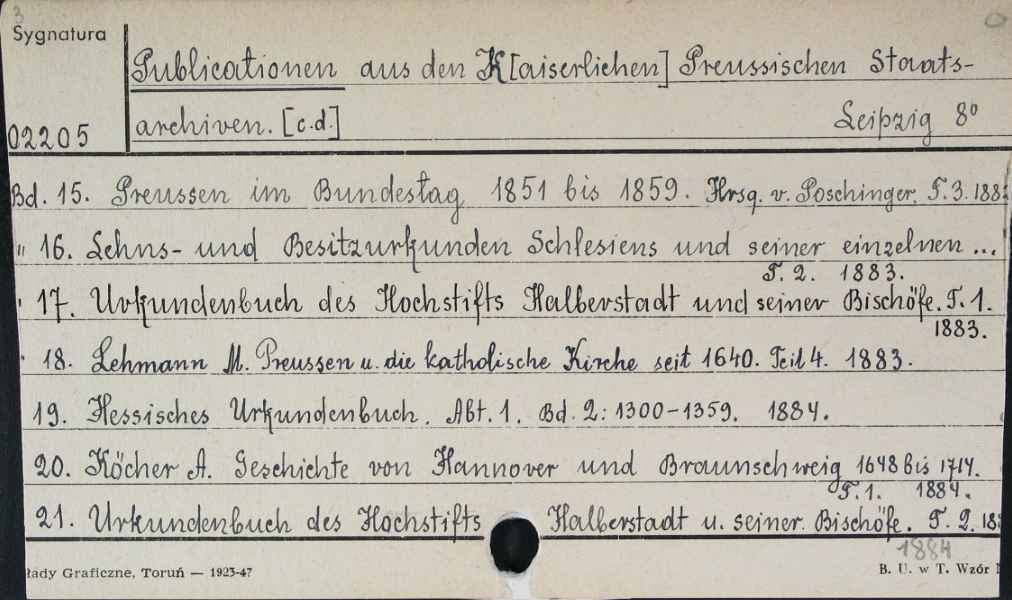 3
Sygnatura
Publicationen aus den K[aiserlichen] Preussischen Staats-
02205 archiven. [c.d.] Leipzig 8º
Bd. 15. Preussen im Bundestag 1851 bis 1859. Hrsg. v. Poschinger. T. 3. 188
" 16. Lehns- und Besitzurkunden Schlesiens und seiner einzelnen ...
T. 2. 1883.
17. Urkundenbuch des Hochstifts Halberstadt und seiner Bischöfe. T. 1.
1883.
18. Lehmann M. Preussen u. die katholische Kirche seit 1640. Teil 4. 1883.
19. Hessisches Urkundenbuch. Abt. 1. Bd. 2: 1300-1359. 1884.
20. Köcher A. Geschichte von Hannover und Braunschweig 1648 bis 1714.
T. 1. 1884.
21. Urkundenbuch des Hochstifts Halberstadt u. seiner Bischöfe. T. 2. 18
1884
łady Graficzne, Toruń — 1923-47 B. U. w T. Wzór